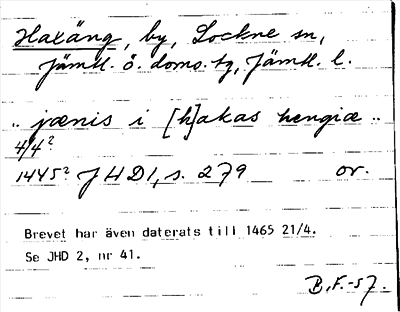 Haxäng, by, Lockne sn,
Jämtl. ö. doms. tg, Jämtl. l.
.. jænis i [h]akas hengiæ ..
4/4 ?
1445? JHD1, s. 279 or.
Brevet har även daterats till 1465 21/4.
Se JHD 2, nr 41.
B.F.-57.